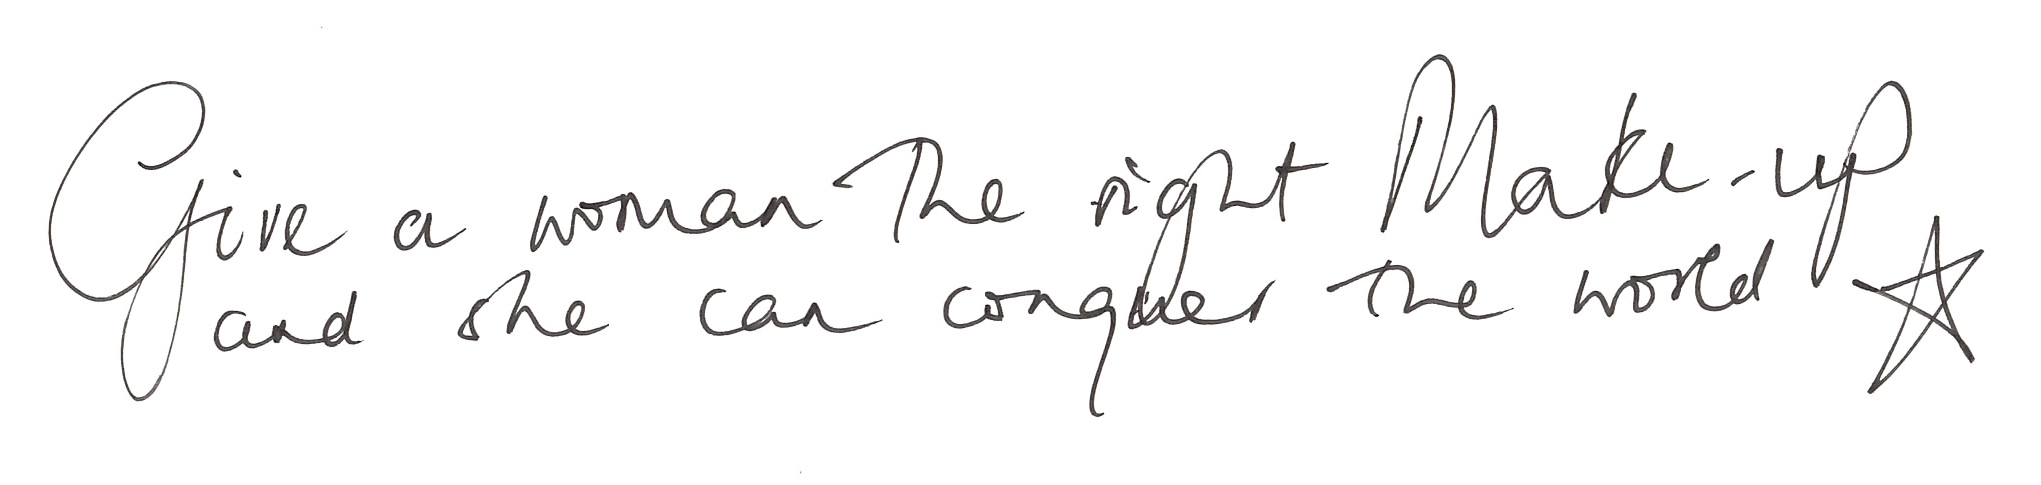 Give a woman the right Make-up
and she can conquer the world